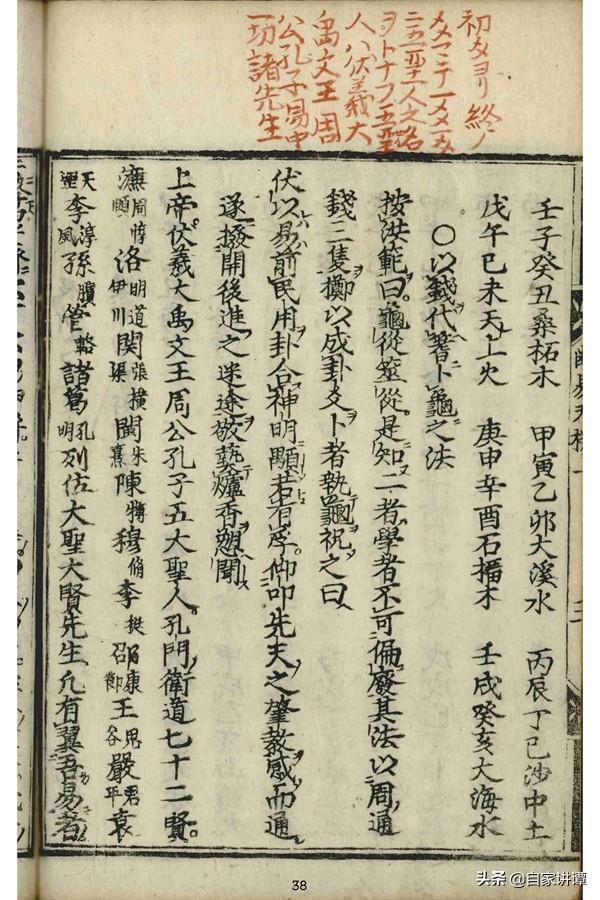 壬子癸丑桑柘木 甲寅乙卯大溪水 丙辰丁巳沙中土
戊午己未天上火 庚申辛酉石榴木 壬戌癸亥大海水
○以錢代蓍卜龜之法
按洪範曰龜從筮從是知二者學者不可偏廢其法以周通
錢三隻擲以成卦爻卜者執龜祝之曰
伏以易前民用卦合神明顯若有孚仰叩先天之肇教感而通
遂撥開後進之迷途敬爇爐香懇聞
上帝伏羲大禹文王周公孔子五大聖人孔門衛道七十二賢
濂周惇頤洛明道伊川関張橫渠閩朱熹陳摶穆脩李挺邵康節王思谷嚴君平袁
天罡李淳風孫臏管輅諸葛孔明列位大聖大賢先生凡有翼吾易者
初メヨリ終ノ
人ハ伏羲大
禹文王周
公孔子易中
一切諸先生
38
头条 @自家讲谭